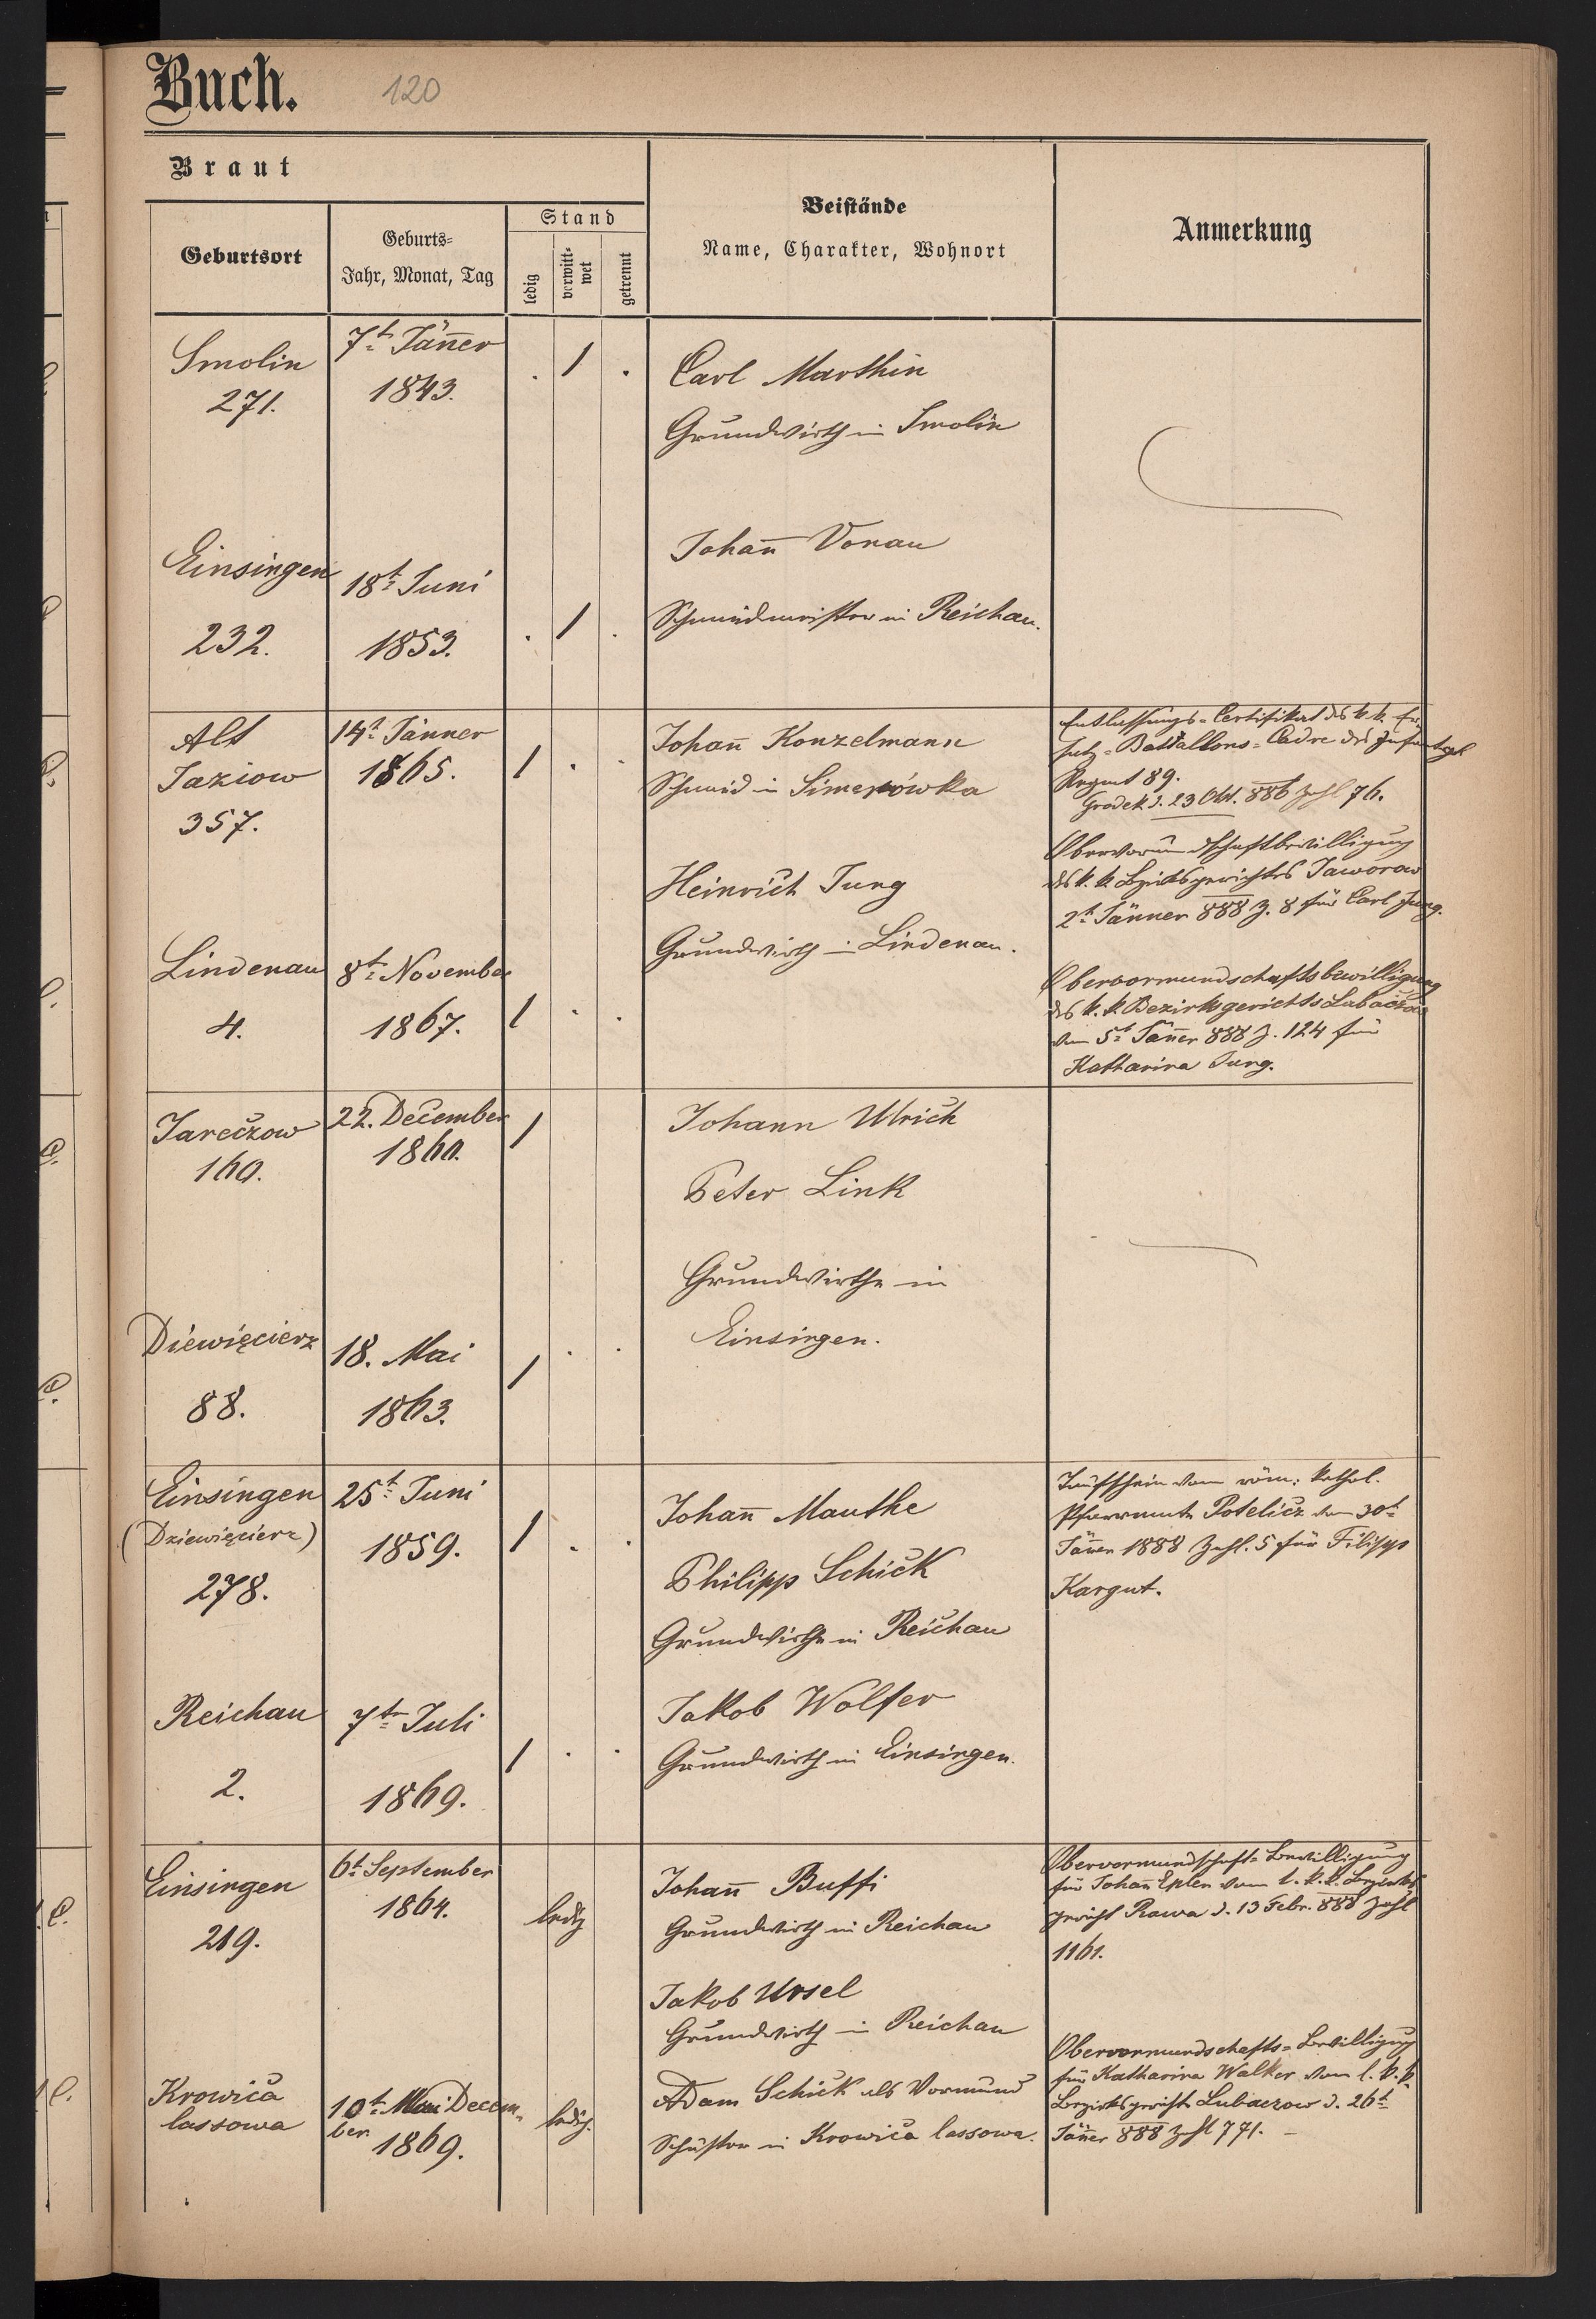 Buch. 120
Braut
Geburtsort
Geburts-
Jahr, Monat, Tag
Stand
ledig
verwitt-
wet
getrennt
Beistände
Name, Charakter, Wohnort
Anmerkung
Smolin
271.
7t Jäner
1843.
. / .
Carl Marthin
Grundwirth in Smolin
Einsingen
232.
18t Juni
1853.
. / .
Johan Vonau
Schmidmeister in Reichau.
Alt
Jaziow
357.
14t Jänner
1865.
/ . .
Johan Konzelmann
Schmid in Simenówka
Entlassungs-Certifikat des k. k. Er-
satz-Battallons-Cadre des
Regmt 89.
Grodek d. 23 Okt. 886 Zahl 76.
Heinrich Jung
Grundwirth in Lindenau.
Obervormundschaftbewilligung
des k. k. Bezirksgerichtes Jaworow
2t Jänner 888 Z. 8 für Carl Jung.
Lindenau
4.
8t November
1867.
/ . .
Obervormundschaftsbewilligung
des k. k. Bezirksgerichts Lubaczow
vom 5t Jäner 888 Z. 124 für
Katharina Jung.
Jareczow
160.
22. December
1860.
/
Johann Ulrich
Peter Link
Grundwirthe in
Einsingen.
Diewięcierz
88.
18. Mai
1863.
/ . .
Einsingen
(Dziewięcierz)
278.
25t Juni
1859.
/ . .
Johan Mauthe
Philipp Schick
Grundwirthe in Reichau
Taufschein vom röm. kathol.
Pfarramte Potelicz vom 30t
Jäner 1888 Zahl. 5 für Filipp
Kargut.
Reichau
2.
7t Juli
1869.
/ . .
Jakob Wolfer
Grundwirth in Einsingen.
Einsingen
219.
6t September
1864.
ledig
Johan Buffi
Grundwirth in Reichau
Jakob Ursel
Grundwirth in Reichau
Obervormundschafts-Bewilligung
für Johan Epler vom l. k. k. Bezirks
gericht Rawa d. 13 Febr. 888 Zahl
1161.
Krowica
lassowa
10t Mai Decem-
ber
1869.
ledig.
Adam Schick als Vormund
Schuster in Krowica lassowa.
Obervormundschafts-Bewilligung
für Katharina Walker vom l. k. k.
Bezirksgericht Lubaczow d. 26t
Jäner 888 Zahl 771. -